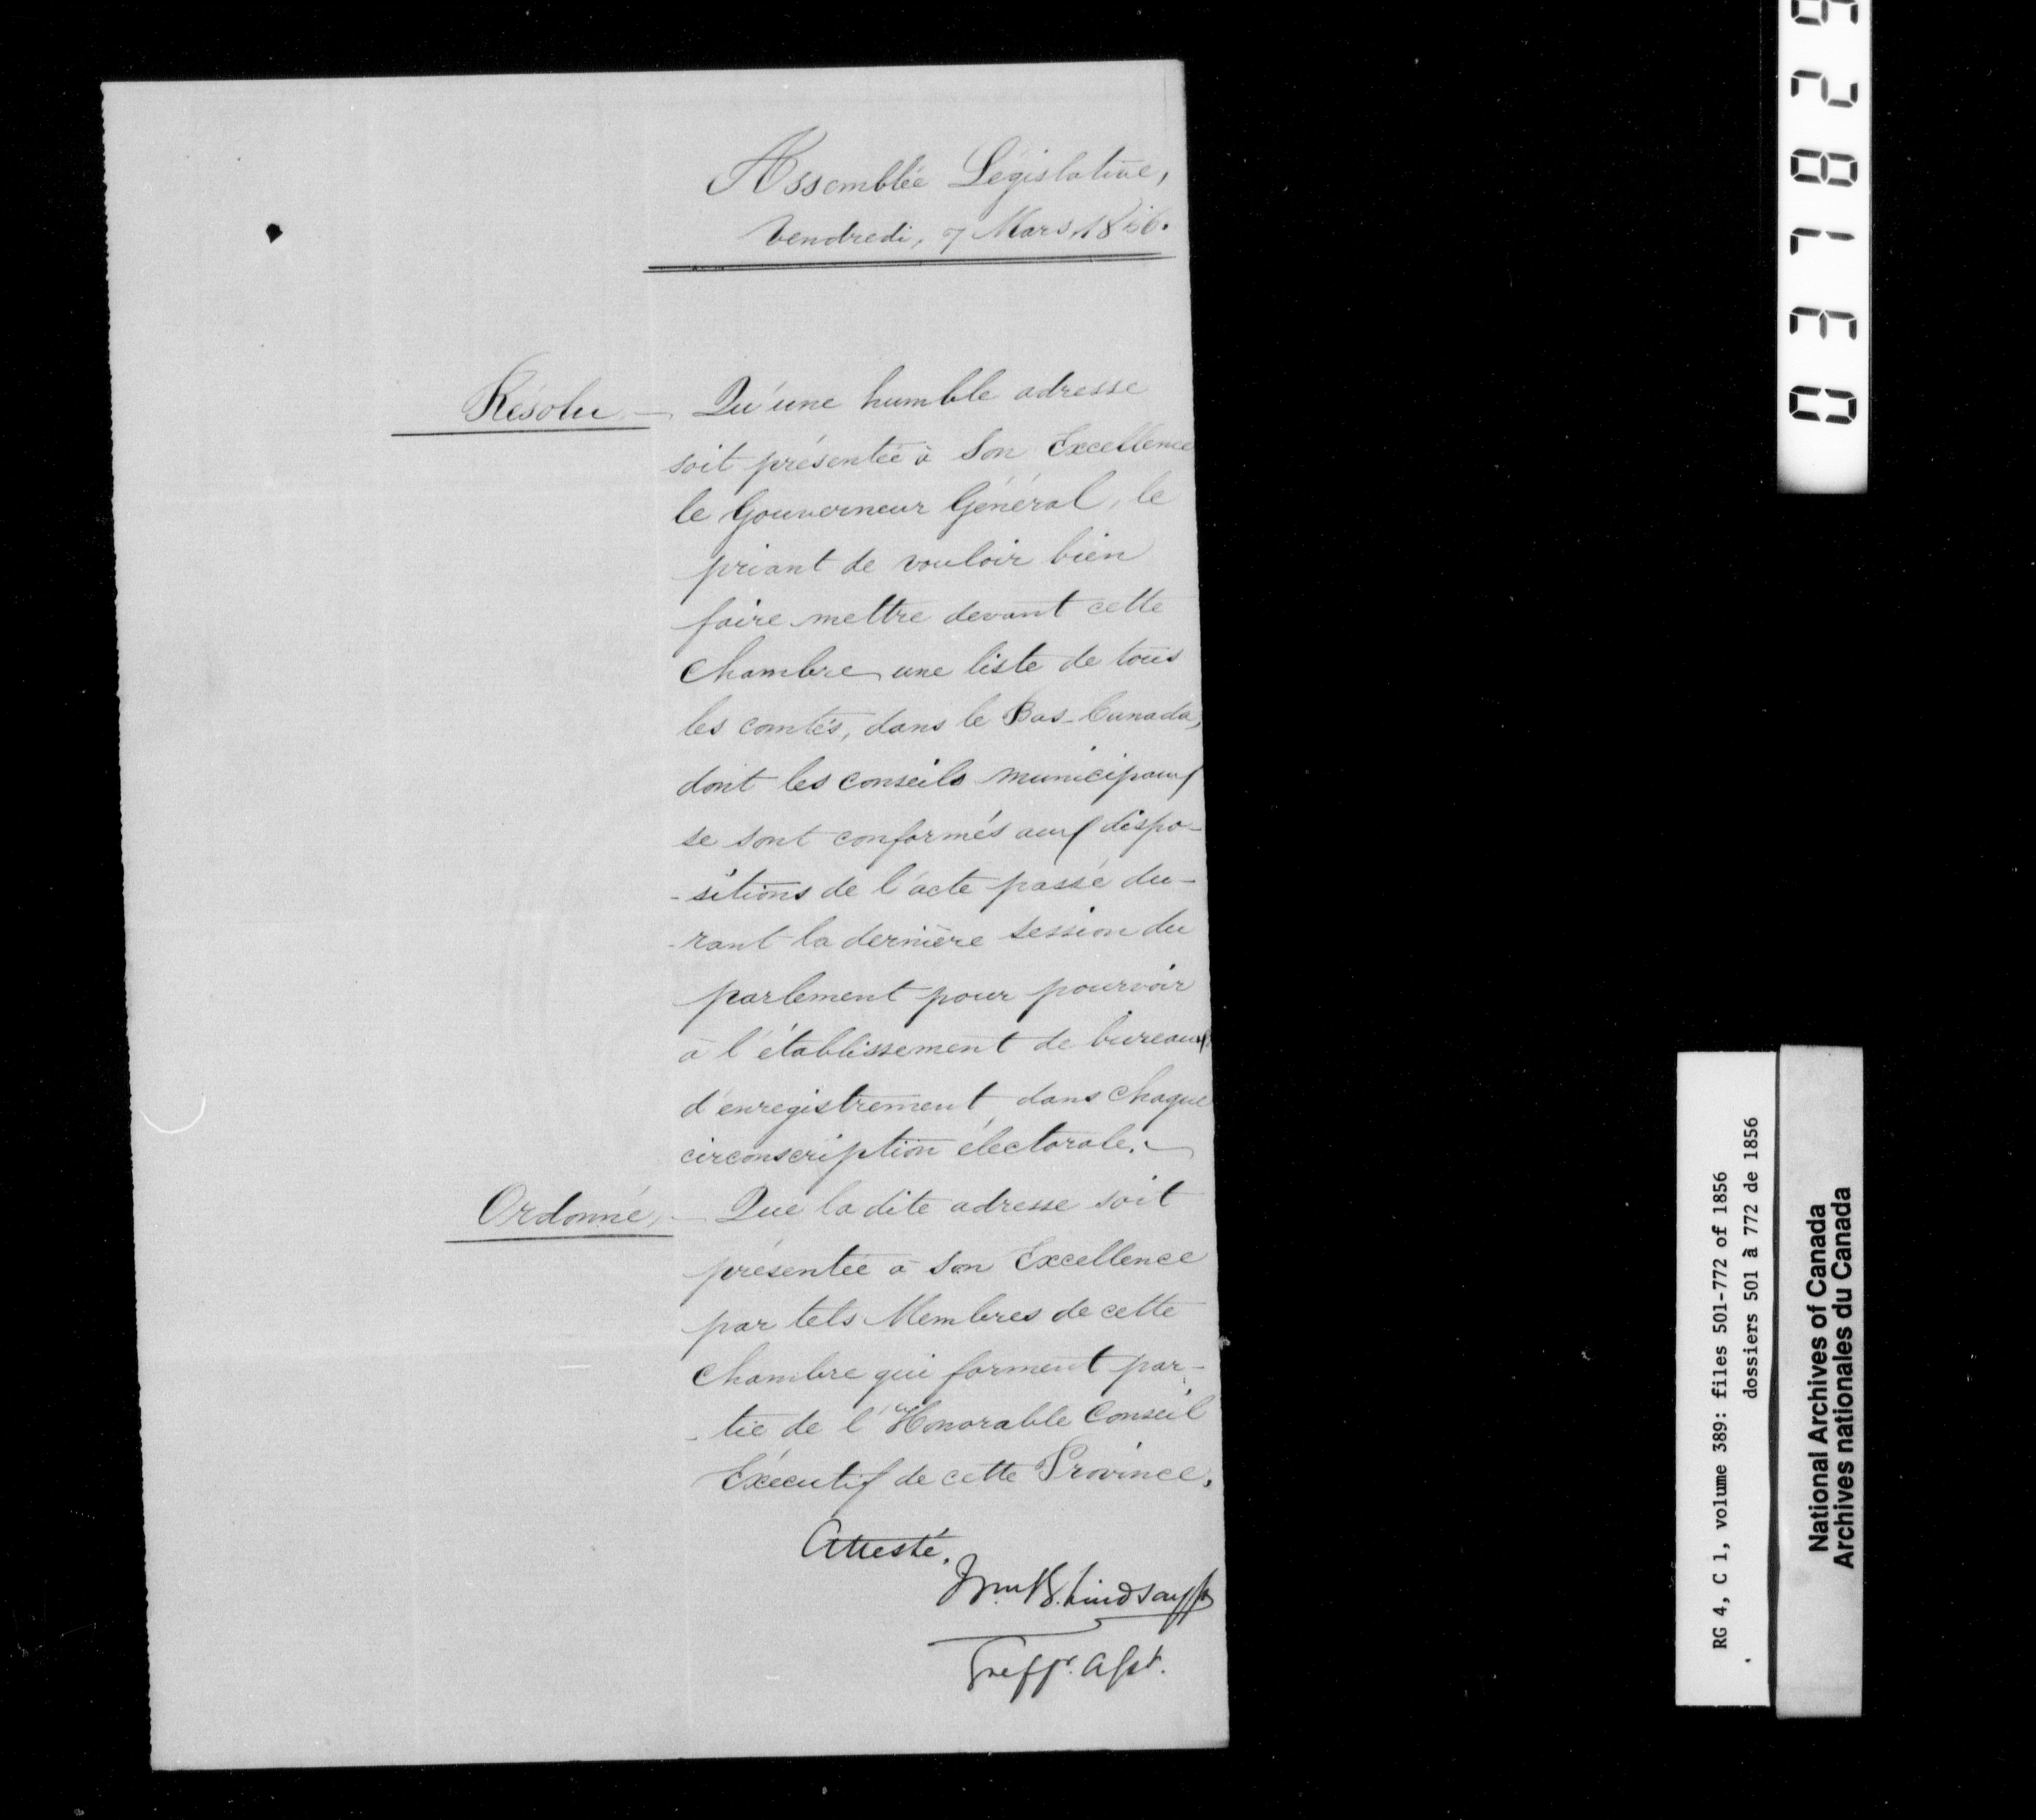 Assemblée Législative,
Vendredi, 7 Mars, 1856.
Résolu — Qu'une humble adresse
soit présentée à Son Excellence
le Gouverneur Général, le
priant de vouloir bien
faire mettre devant cette
Chambre une liste de tous
les comtés, dans le Bas-Canada,
dont les conseils municipaux
se sont conformés aux dispo-
-sitions de l'acte passé du-
-rant la dernière session du
parlement pour pourvoir
à l'établissement de bureaux
d'enregistrement dans chaque
circonscription électorale. —
Ordonné, — Que la dite adresse soit
présentée à son Excellence
par tels Membres de cette
Chambre qui forment par-
-tie de l'Honorable Conseil
Exécutif de cette Province.
Attesté.
Wm. B. Lindsay Jr
Greffr. Asst.
037829
RG 4, C 1, volume 389: files 501-772 of 1856
dossiers 501 à 772 de 1856
National Archives of Canada
Archives nationales du Canada